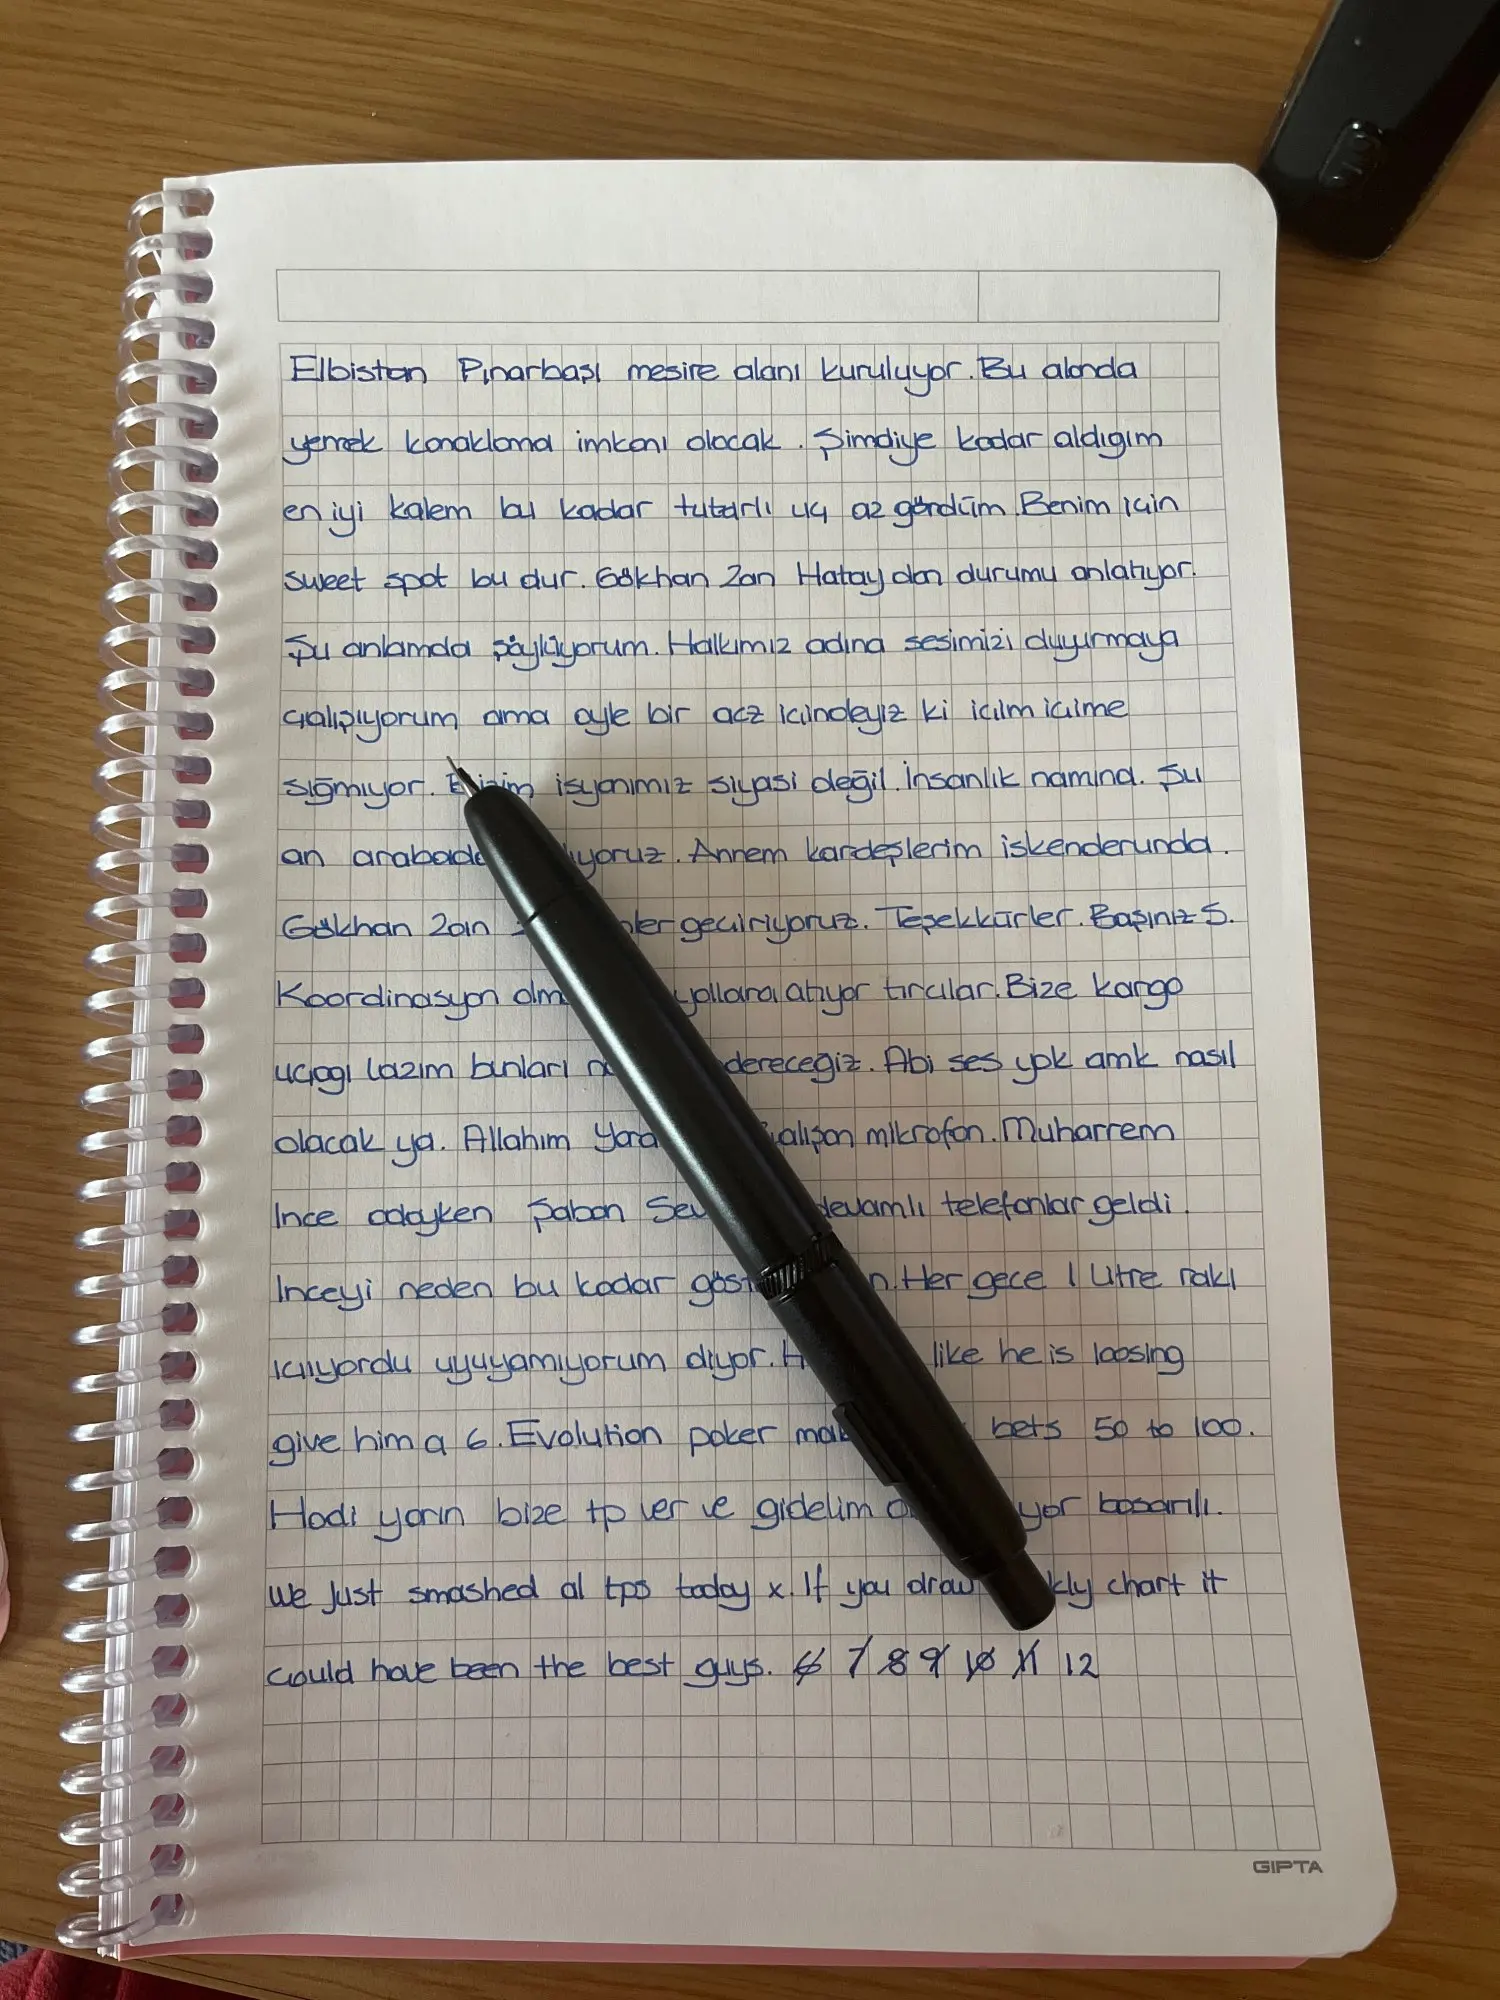 Elbistan Pınarbaşı mesire alanı kuruluyor. Bu alanda
yemek konaklama imkanı olacak. Şimdiye kadar aldıgım
en iyi kalem bu kadar tutarlı uç az gördüm. Benim için
sweet spot bu dur. Gökhan Zan Hataydan durumu anlatıyor.
Şu anlamda şöylüyorum. Halkımız adına sesimizi duyurmaya
çalışıyorum ama öyle bir acz içindeyiz ki içim içime
sığmıyor. isyanımız siyasi değil. İnsanlık namına. Şu
an Annem kardeşlerim iskenderunda.
Gökhan Zan geçiriyoruz. Teşekkürler. Başınız S.
Koordinasyon yollara atıyor tırcılar. Bize kargo
uçagı lazım bunları Abi ses yok amk nasıl
olacak ya. Allahım mikrofon. Muharrem
Ince adayken Şaban devamlı telefonlar geldi.
Inceyi neden bu kadar Her gece 1 Litre rakı
içiyordu uyuyamıyorum diyor. like he is loosing
give him a 6. Evolution poker bets 50 to 100.
Hadi yarın bize tp ver ve gidelim basarılı.
we just smashed al tps today x. If you draw chart it
could have been the best guys. 6 7 8 9 10 11 12
GIPTA